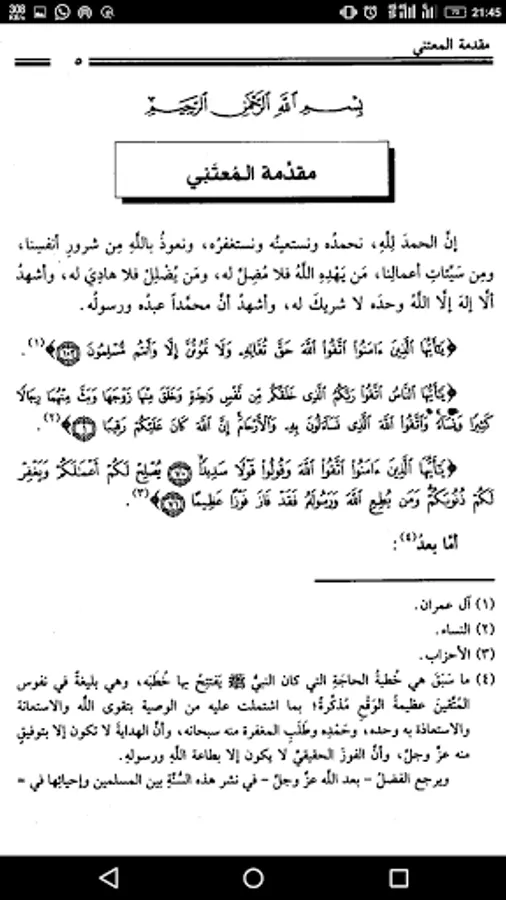 308
KB/s
70
21:45
مقدمة المعتني
٥
بِسْمِ اللَّهِ الرَّحْمَٰنِ الرَّحِيمِ
مقدِّمة المُعتَني
إنَّ الحمدَ لِلَّهِ، نحمدُه ونستعينُه ونستغفرُه، ونعوذُ باللَّهِ مِن شرورِ أنفسِنا،
ومِن سَيّئاتِ أعمالِنا، مَن يَهْدِهِ اللَّهُ فلا مُضِلَّ له، ومَن يُضْلِلْ فلا هادِيَ له، وأشهدُ
ألَّا إلهَ إلَّا اللَّهُ وحدَه لا شريكَ له، وأشهدُ أنَّ محمَّداً عبدُه ورسولُه.
﴿يَٰٓأَيُّهَا ٱلَّذِينَ ءَامَنُوا۟ ٱتَّقُوا۟ ٱللَّهَ حَقَّ تُقَاتِهِۦ وَلَا تَمُوتُنَّ إِلَّا وَأَنتُم مُّسْلِمُونَ ١٠٢﴾(١).
﴿يَٰٓأَيُّهَا ٱلنَّاسُ ٱتَّقُوا۟ رَبَّكُمُ ٱلَّذِى خَلَقَكُم مِّن نَّفْسٍ وَٰحِدَةٍ وَخَلَقَ مِنْهَا زَوْجَهَا وَبَثَّ مِنْهُمَا رِجَالًا
كَثِيرًا وَنِسَآءً وَٱتَّقُوا۟ ٱللَّهَ ٱلَّذِى تَسَآءَلُونَ بِهِۦ وَٱلْأَرْحَامَ إِنَّ ٱللَّهَ كَانَ عَلَيْكُمْ رَقِيبًا ١﴾(٢).
﴿يَٰٓأَيُّهَا ٱلَّذِينَ ءَامَنُوا۟ ٱتَّقُوا۟ ٱللَّهَ وَقُولُوا۟ قَوْلًا سَدِيدًا ٧٠ يُصْلِحْ لَكُمْ أَعْمَٰلَكُمْ وَيَغْفِرْ
لَكُمْ ذُنُوبَكُمْ وَمَن يُطِعِ ٱللَّهَ وَرَسُولَهُۥ فَقَدْ فَازَ فَوْزًا عَظِيمًا ٧١﴾(٣).
أمَّا بعدُ(٤):
(١) آل عمران.
(٢) النساء.
(٣) الأحزاب.
(٤) ما سَبَقَ هي خُطبةُ الحاجَةِ التي كان النبيُّ ﷺ يَفتتِحُ بها خُطَبَه، وهي بليغةٌ في نفوس
المُتَّقينَ عظيمةُ الوَقْعِ مُذكِّرةٌ؛ بما اشتملت عليه من الوصية بتقوى اللَّه والاستعانة
والاستعاذة به وحده، وحَمْدِه وطَلَبِ المغفرة منه سبحانه، وأنَّ الهدايةَ لا تكون إلا بتوفيقٍ
منه عزَّ وجلَّ، وأنَّ الفوزَ الحقيقيَّ لا يكون إلا بطاعة اللَّهِ ورسولِهِ.
ويرجع الفضلُ - بعد اللَّه عزَّ وجلَّ - في نشر هذه السُّنَّةِ بين المسلمين وإحيائِها في =